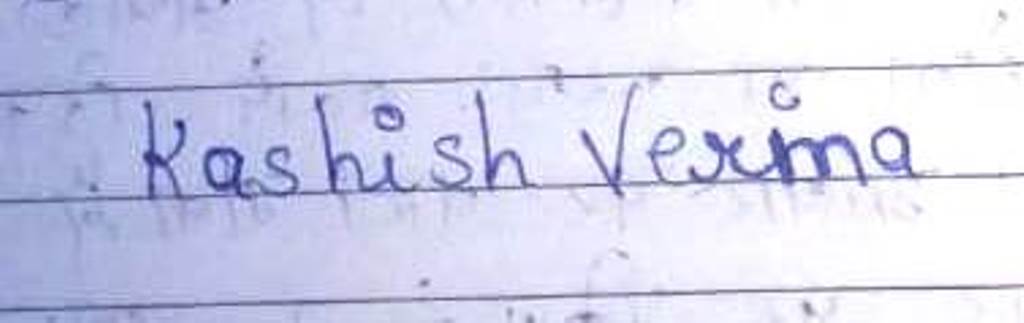 Kashish Verima